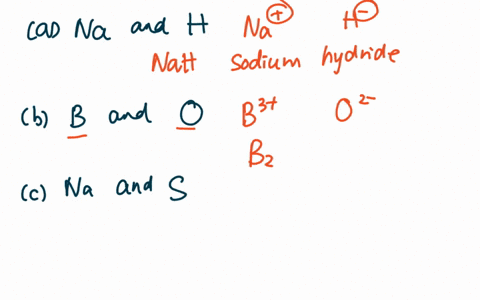 (a) Na and H Na⁺ H⁻
NaH Sodium hydride
(b) B and O B³⁺ O²⁻
B₂
(c) Na and S